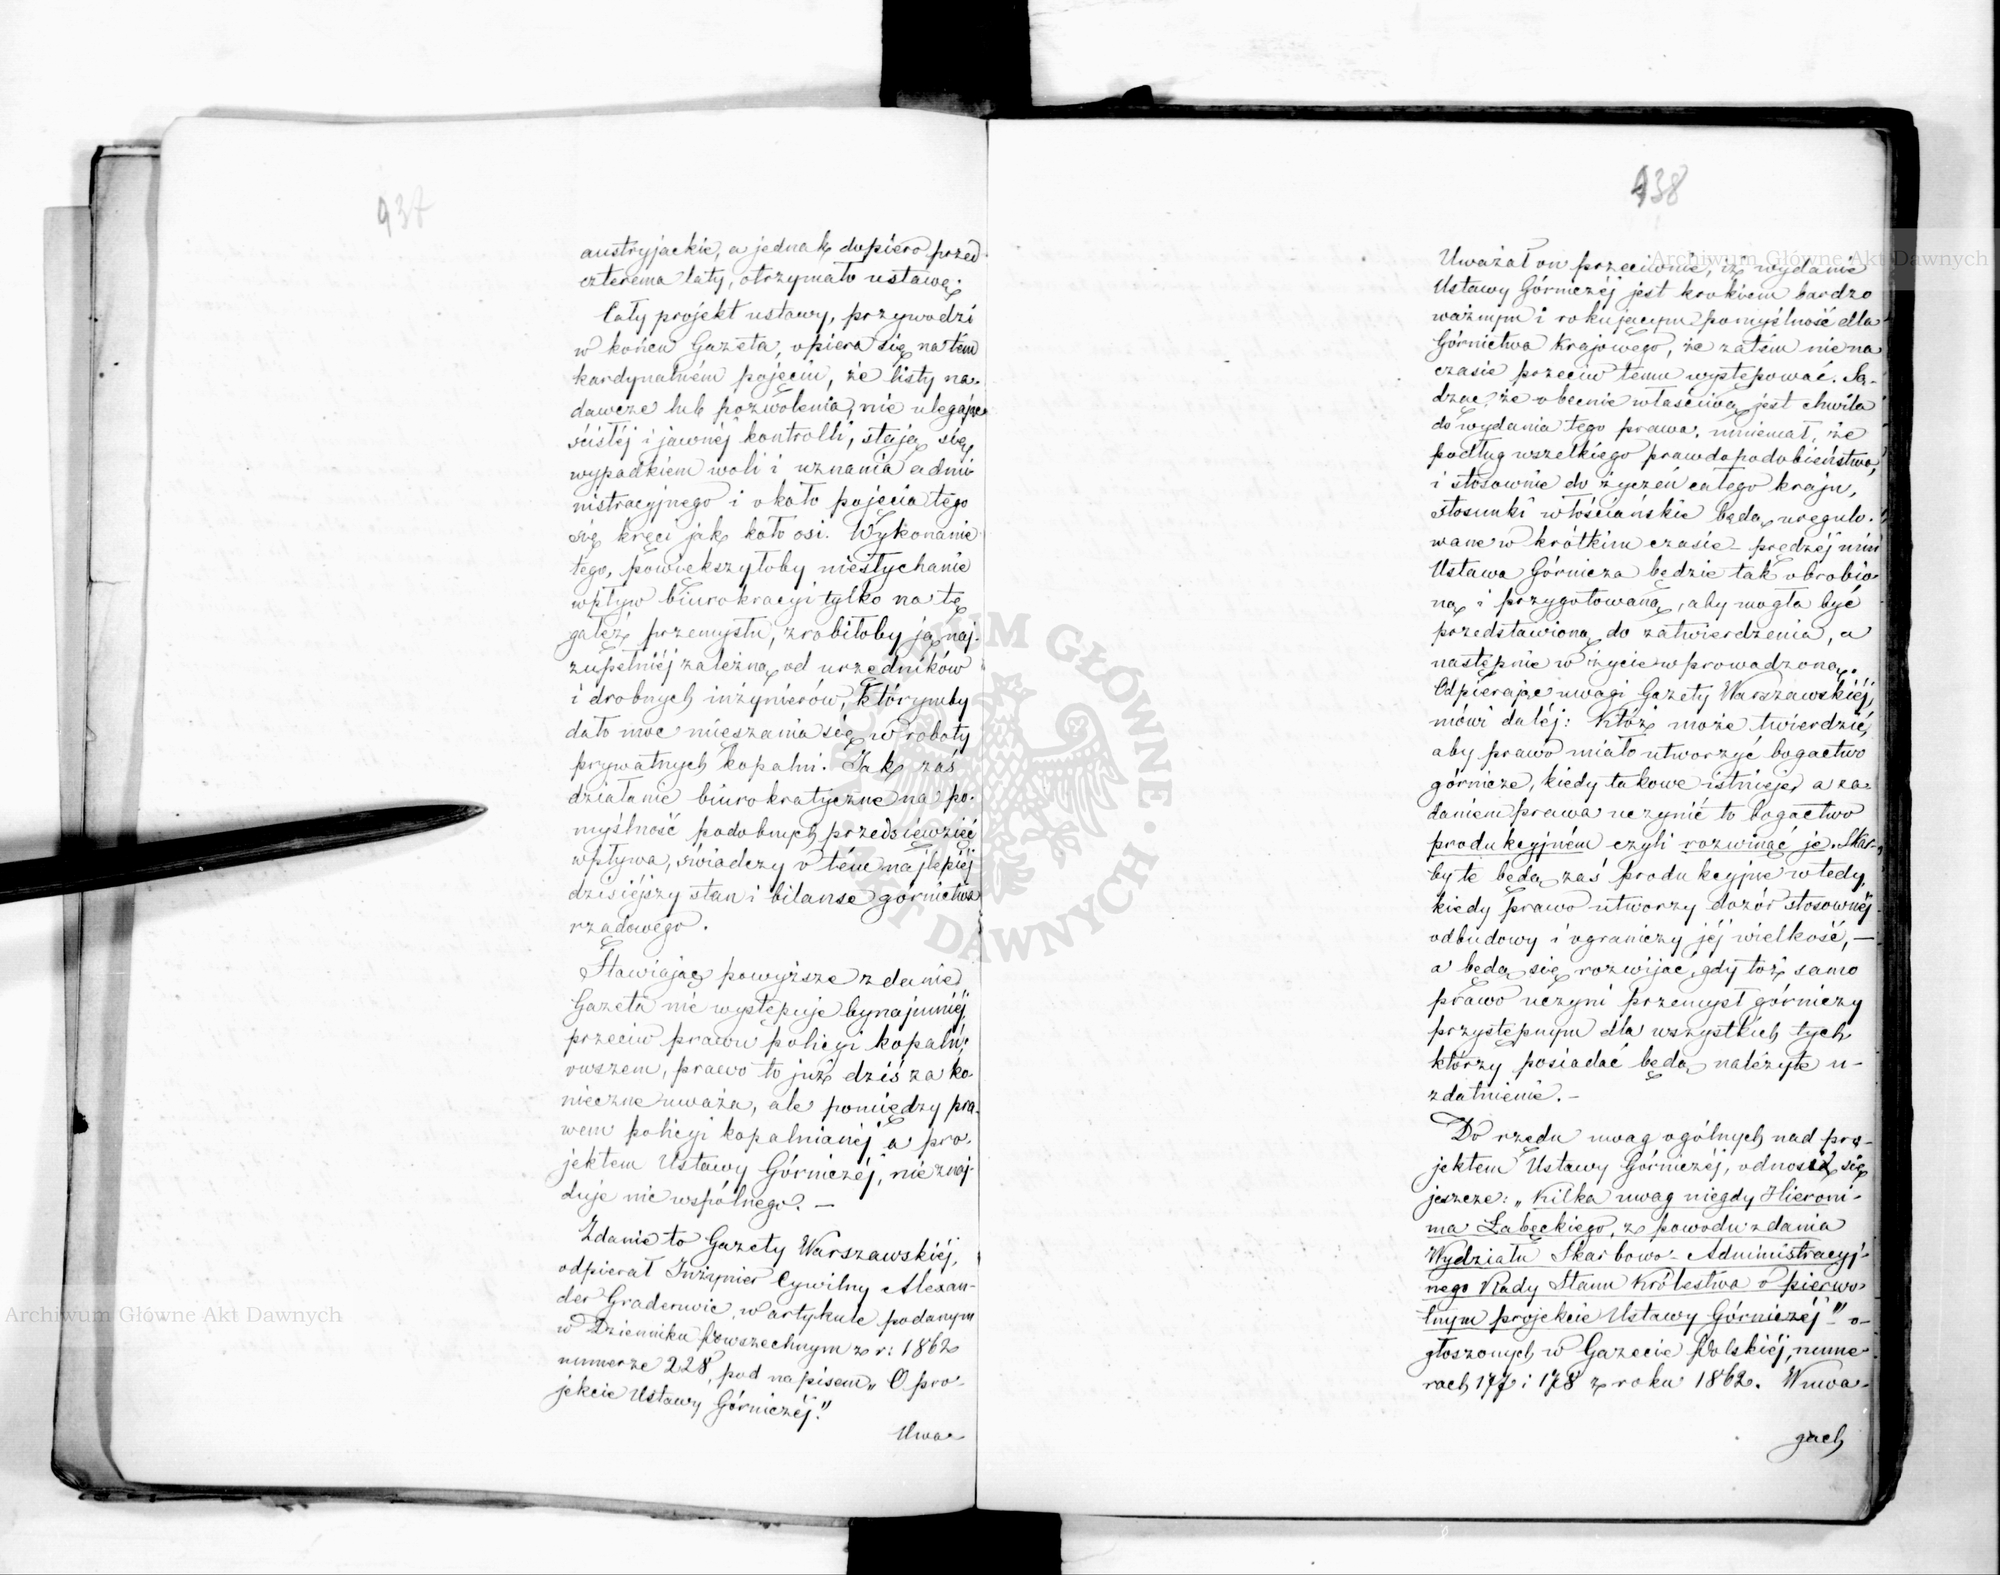 937
austryjackie, a jednak dopiero przed
czterema laty, otrzymało ustawę.
Cały projekt ustawy, przywodzi
w końcu Gazeta, opiera się na tem
kardynalném pojęciu, że listy na-
dawcze lub pozwolenia, nie ulegając
ścisłéj i jawnéj kontrolli, stają się
wypadkiem woli i uznania admi-
nistracyjnego i około pojęcia tego
się kręci jak koło osi. Wykonanie
tego, powiększyłoby niesłychanie
wpływ biurokracyi tylko na tę
gałęź przemysłu, zrobiłoby ją naj-
zupełniéj zależną od urzędników
i drobnych inżynierów, którymby
dało moc mieszania się w roboty
prywatnych kopalni. Jak zaś
działanie biurokratyczne na po-
myślność podobnych przedsięwzięć
wpływa, świadczy o tém najlepiéj
dzisiéjszy stan i bilanse górnictwa
rządowego.
Stawiając powyższe zdanie
Gazeta nie występuje bynajmniéj,
przeciw prawu policyi kopalń;
owszem, prawo to już dziś za ko-
nieczne uważa, ale pomiędzy pra-
wem policyi kopalnianéj a pro-
jektem Ustawy Górniczéj, nie znaj-
duje nic wspólnego. —
Zdanie to Gazety Warszawskiéj,
odpierał Inżynier Cywilny Alexan-
der Graderowic, w artykule podanym
w Dzienniku Powszechnym z r: 1862
numerze 228, pod napisem „O pro-
jekcie Ustawy Górniczéj."
Uwa-
938
Uważał on przeciwnie, iż wydanie
Ustawy Górniczéj jest krokiem bardzo
ważnym i rokującym pomyślność dla
Górnictwa Krajowego, że zatem nie na
czasie przeciw temu występować. Są-
dząc, że obecnie właściwą jest chwila
do wydania tego prawa, mniemał, że
podług wszelkiego prawdopodobieństwa,
i stosownie do życzeń całego kraju,
stosunki włościańskie będą uregulo-
wane w krótkim czasie – prędzéj nim
Ustawa Górnicza będzie tak obrobio-
ną i przygotowaną, aby mogła być
przedstawioną do zatwierdzenia, a
następnie w życie wprowadzoną.
Odpierając uwagi Gazety Warszawskiéj,
mówi daléj: Któż może twierdzić,
aby prawo miało utworzyć bogactwo
górnicze, kiedy takowe istnieje, a za-
daniem prawa uczynić to bogactwo
produkcyjném czyli rozwinąć je. Skar-
by te będą zaś produkcyjne wtedy,
kiedy prawo utworzy dozór stosownéj
odbudowy i ograniczy jéj wielkość, —
a będą się rozwijać, gdy toż samo
prawo uczyni przemysł górniczy
przystępnym dla wszystkich tych
którzy posiadać będą należyte u-
zdatnienie. –
Do rzędu uwag ogólnych nad pro-
jektem Ustawy Górniczéj, odnosi się
jeszcze: „Kilka uwag niegdy Hieroni-
ma Łabęckiego, z powodu zdania
Wydziału Skarbowo-Administracyj-
nego Rady Stanu Królestwa o pierwo-
tnym projekcie Ustawy Górniczéj" o-
głoszonych w Gazecie Polskiéj, nume-
rach 177 i 178 z roku 1862. W uwa-
gach
Archiwum Główne Akt Dawnych
Archiwum Główne Akt Dawnych